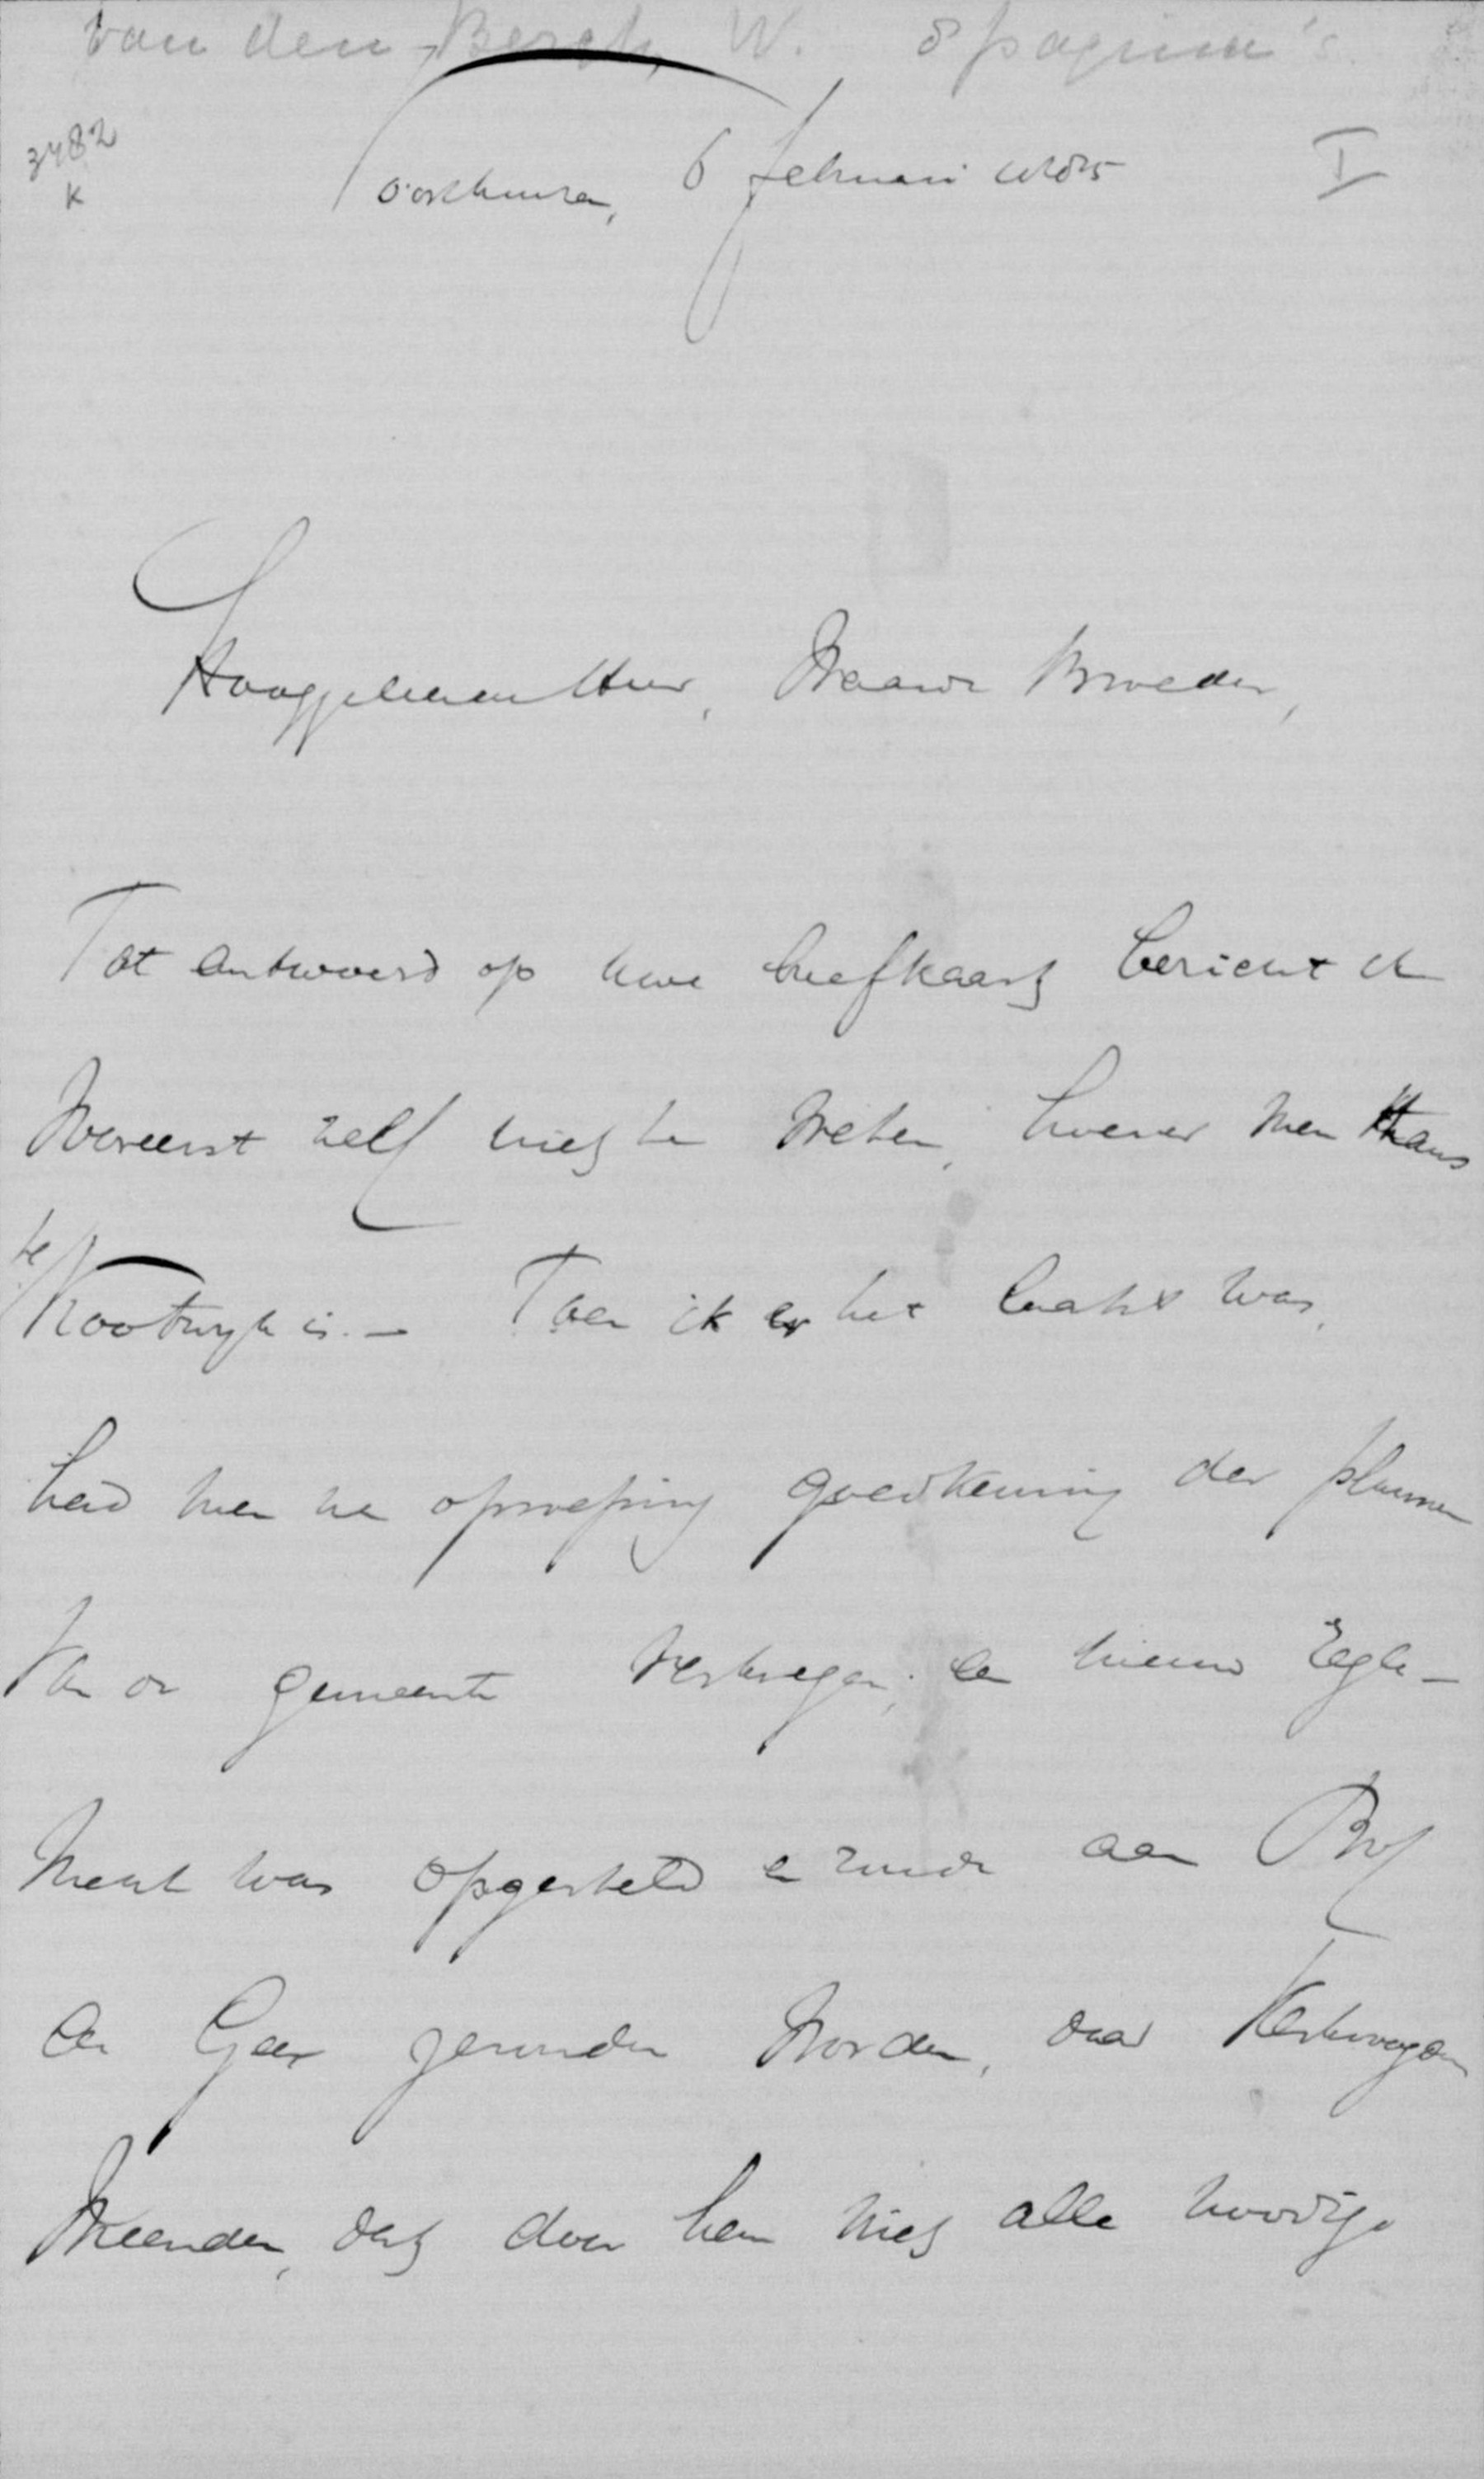 van den Bergh, W. 8 pagina's
3482
K
Voorthuizen, 6 februari 1885
I
Hooggeleerde Heer, Waarde Broeder,
Tot antwoord op uwe briefkaart bericht ik
vooreerst zelf niet te weten, hoever men thans
te Kootwijk is. — Toen ik er het laatst was,
had men na oproeping goedkeuring der plannen
van de gemeente verkregen; een nieuw regle-
ment was opgesteld en zoude aan Prof
de Geer gezonden worden, daar Kerkvoogden
meenden, dat door hen niet alle noodige